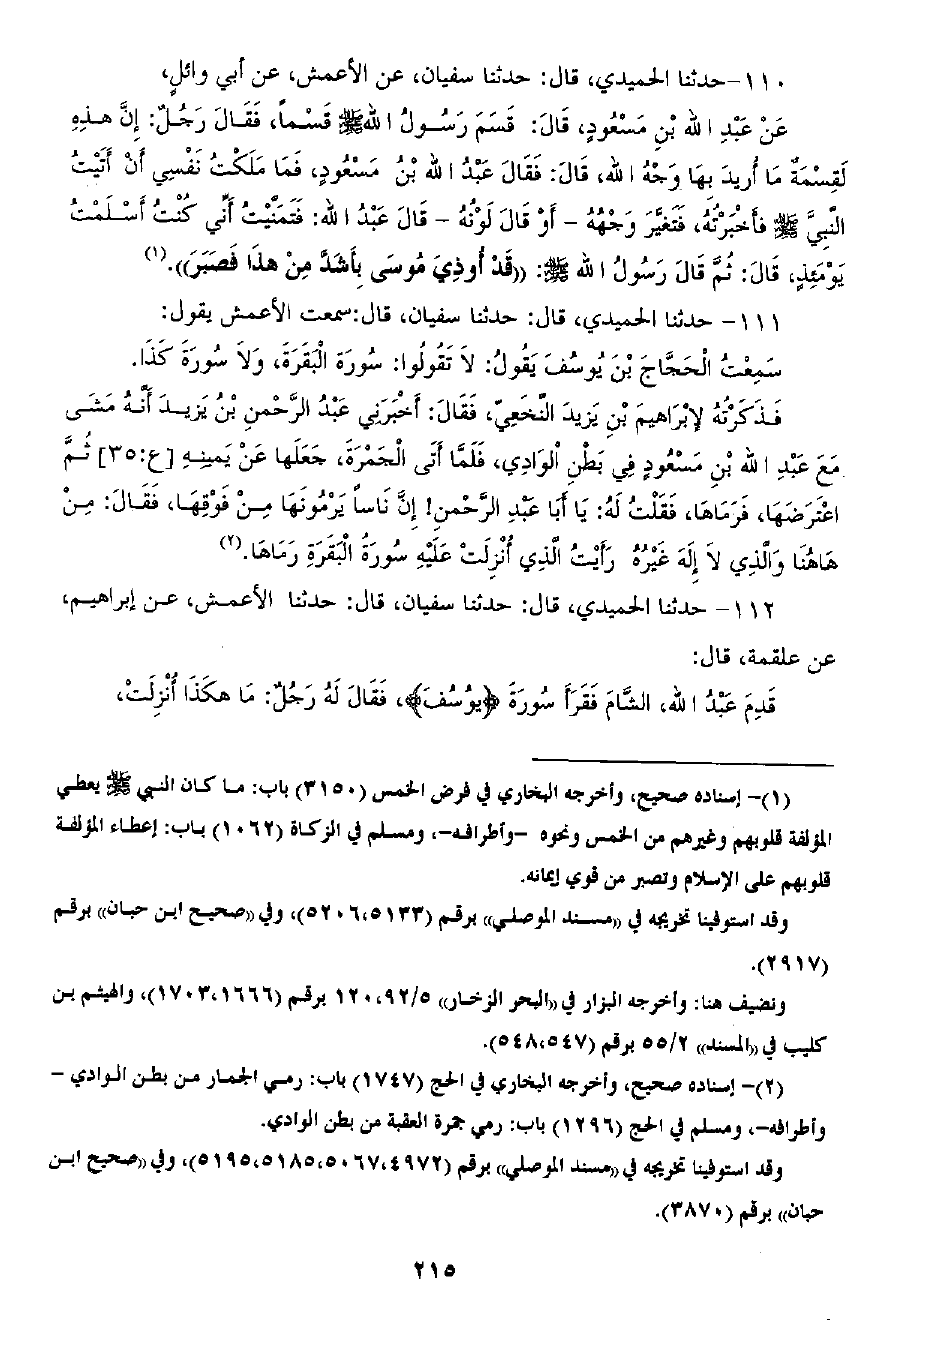 ١١٠-حدثنا الحميدي، قال: حدثنا سفيان، عن الأعمش، عن أبي وائلٍ،
عَنْ عَبْدِ اللهِ بْنِ مَسْعُودٍ، قَالَ: قَسَمَ رَسُولُ اللهِ ﷺ قَسْماً، فَقَالَ رَجُلٌ: إِنَّ هذِهِ
لَقِسْمَةٌ مَا أُرِيدَ بِهَا وَجْهُ اللهِ، قَالَ: فَقَالَ عَبْدُ اللهِ بْنُ مَسْعُودٍ، فَمَا مَلَكْتُ نَفْسِي أَنْ أَتَيْتُ
النَّبِيَّ ﷺ فأَخْبَرْتُهُ، فَتَغَيَّرَ وَجْهُهُ – أَوْ قَالَ لَوْنُهُ – قَالَ عَبْدُ اللهِ: فَتَمَنَّيْتُ أَنِّي كُنْتُ أَسْلَمْتُ
يَوْمَئِذٍ، قَالَ: ثُمَّ قَالَ رَسُولُ اللهِ ﷺ: ((قَدْ أُوذِيَ مُوسَى بِأَشَدَّ مِنْ هذَا فَصَبَرَ)).(١)
١١١- حدثنا الحميدي، قال: حدثنا سفيان، قال:سمعت الأعمش يقول:
سَمِعْتُ الْحَجَّاجَ بْنَ يُوسُفَ يَقُولُ: لاَ تَقُولُوا: سُورَةَ الْبَقَرَةِ، وَلاَ سُورَةَ كَذَا.
فَذَكَرْتُهُ لإِبْرَاهِيمَ بْنِ يَزِيدَ النَّخَعِيِّ، فَقَالَ: أَخْبَرَنِي عَبْدُ الرَّحْمنِ بْنُ يَزِيدَ أَنَّهُ مَشَى
مَعَ عَبْدِ اللهِ بْنِ مَسْعُودٍ فِي بَطْنِ الْوَادِي، فَلَمَّا أَتَى الْجَمْرَةَ، جَعَلَها عَنْ يَمِينِهِ [ع:٣٥] ثُمَّ
اعْتَرَضَهَا، فَرَمَاهَا، فَقُلْتُ لَهُ: يَا أَبَا عَبْدِ الرَّحْمنِ! إِنَّ نَاساً يَرْمُونَهَا مِنْ فَوْقِهَا، فَقَالَ: مِنْ
هَاهُنَا وَالَّذِي لاَ إِلَهَ غَيْرُهُ رَأَيْتُ الَّذِي أُنْزِلَتْ عَلَيْهِ سُورَةُ الْبَقَرَةِ رَمَاهَا.(٢)
١١٢- حدثنا الحميدي، قال: حدثنا سفيان، قال: حدثنا الأعمش، عن إبراهيم،
عن علقمة، قال:
قَدِمَ عَبْدُ اللهِ، الشَّامَ فَقَرَأَ سُورَةَ ﴿يُوسُفَ﴾، فَقَالَ لَهُ رَجُلٌ: مَا هكَذَا أُنْزِلَتْ،
(١)- إسناده صحيح، وأخرجه البخاري في فرض الخمس (٣١٥٠) باب: ما كان النبي ﷺ يعطي
المؤلفة قلوبهم وغيرهم من الخمس ونحوه -وأطرافه-، ومسلم في الزكاة (١٠٦٢) باب: إعطاء المؤلفة
قلوبهم على الإسلام وتصبر من قوي إيمانه.
وقد استوفينا تخريجه في ((مسند الموصلي)) برقم (٥١٣٣،٥٢٠٦)، وفي ((صحيح ابن حبان)) برقم
(٢٩١٧).
ونضيف هنا: وأخرجه البزار في ((البحر الزخار)) ٩٢/٥،١٢٠ برقم (١٦٦٦،١٧٠٣)، والهيثم بن
كليب في ((المسند)) ٥٥/٢ برقم (٥٤٧،٥٤٨).
(٢)- إسناده صحيح، وأخرجه البخاري في الحج (١٧٤٧) باب: رمي الجمار من بطن الوادي –
وأطرافه-، ومسلم في الحج (١٢٩٦) باب: رمي جمرة العقبة من بطن الوادي.
وقد استوفينا تخريجه في ((مسند الموصلي)) برقم (٤٩٧٢،٥٠٦٧،٥١٨٥،٥١٩٥)، وفي ((صحيح ابن
حبان)) برقم (٣٨٧٠).
٢١٥